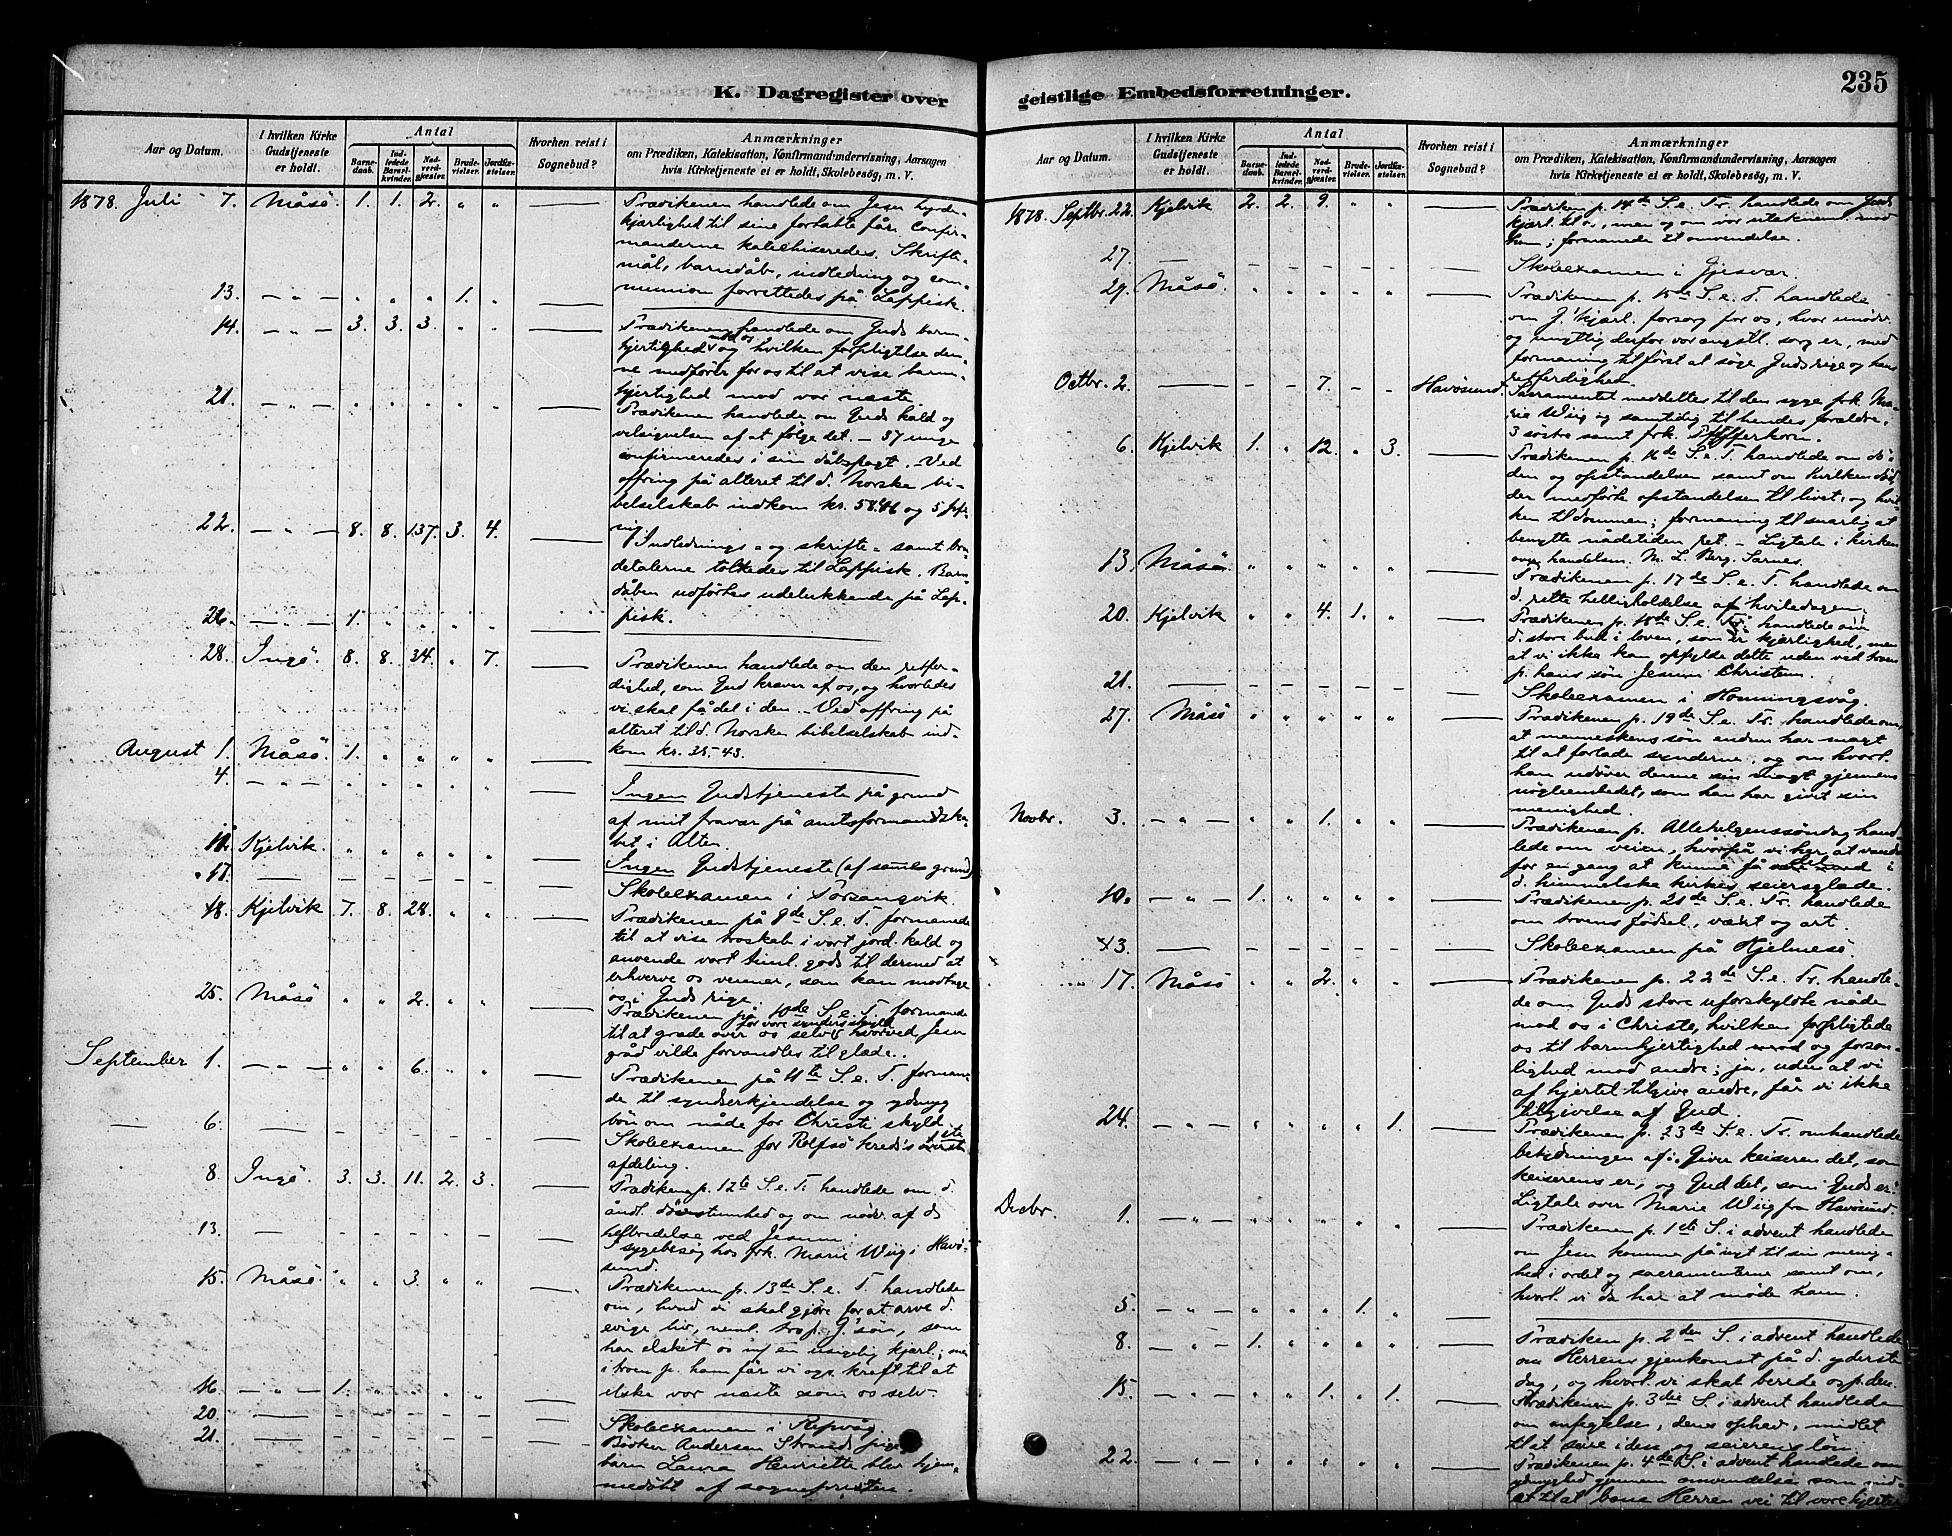 K. Dagregister over
Aar og Datum.
I hvilken Kirke Gudstjeneste er holdt.
Antal
Barnedaab.
Indledede Barselkvinder.
Nadverdgjæster.
Brudevielser.
Jordfæstelser.
Hvorhen reist i Sognebud?
Anmærkninger
om Prædiken, Katekisation, Konfirmandundervisning, Aarsagen
hvis Kirketjeneste ei er holdt, Skolebesøg, m. V.
1878. Juli 7. Måsö 1. 1. 2. „ „ Prædikenen handlede om Jesu
kjærlighed til sine fortabte får. Confir-
manderne katechiseredes. Skrifte-
mål, barnedåb, indledning og com-
13. „ „ „ „ 1. „ munion forrettedes på Lappisk.
14. „ 3. 3. 3. „ „ Prædikenen handlede om Guds barm-
hjertighed mod os og hvilken forpligtelse den-
ne medförer for os til at vise barm-
hjertighed mod vor næste.
21. „ „ „ „ „ „ Prædikenen handlede om Guds kald og
velsignelsen af at følge det. – 37 unge
confirmeredes i sin dåbspagt. – Ved
offring på alteret til d. Norske bi-
belselskab indkom kr. 58.46 og 5
22. „ 8. 8. 137. 3. 4.
Indlednings- og skrifte- samt bru-
detalerne tolkedes til Lappisk. Barn-
dåben udförtes udelukkende på Lap-
26. „ 1. „ „ „ „ pisk.
28. Ingö. 8. 8. 34. „ 7. Prædikenen handlede om den retfær-
dighed, som Gud kræver af os, og hvorledes
vi skal få del i den. – Ved offring på
alteret til d. Norske bibelselskab ind-
August 1. Måsö 1. „ „ „ „ kom kr. 35-43.
4. „ „ „ „ „ „ Ingen Gudstjeneste på grund
af mit fravær på amtsformandska-
bet i Alten.
11. Kjelvik. „ „ „ „ „ Ingen Gudstjeneste (af samme grund)
17. Skoleexamen i Porsangvik.
18. Kjelvik 7. 8. 28. „ „ Prædikenen på 9de S. e. T. formanede
til at vise troskab i vort jord. kald og
anvende vort timl. gods til dermed at
erhverve os venner, som kan modtage
os i Guds rige.
25. Måsö „ „ 2. „ „ Prædikenen på 10de S. e. T. formanede
til at græde over os selv for vore synders skyld hvorved Jesu
gråd vilde forvandles til glæde.
September 1. „ „ „ 6. „ „ Prædikenen på 11te S. e. T. forman-
de til synderkjendelse og ydmyg
bön om nåde for Christi skyld
6. Skoleexamen for Rolfsö kreds's överste
afdeling.
8. Ingö. 3. 3. 11. 2. 3. Prædiken p. 12te S. e. T. handlede om d.
åndl. dövstumhed og om nödv. af ds
helbredelse ved Jesum.
13. I sygebesög hos frk. Marie Wiig i Havö-
sund.
15. Måsö. „ „ 3. „ „ Prædikenen p. 13de S. e. T. handlede
om, hvad vi skal gjöre for at arve d.
evige liv, neml. tro p. G's sön, som
har elsket os m/ en usigelig kjærl.;
i troen p. ham får vi ogs. kraft til at
elske vor næste som os selv.
16. „ 1. „ „ „ „
20. Skoleexamen i Repvåg
21. Bödker Andersen Strands pige-
barn Laura Henriette blev hjem-
medöbt af sognepresten.
geistlige Embedsforretninger.
235
Aar og Datum.
I hvilken Kirke Gudstjeneste er holdt.
Antal
Barnedaab.
Indledede Barselkvinder.
Nadverdgjæster.
Brudevielser.
Jordfæstelser.
Hvorhen reist i Sognebud?
Anmærkninger
om Prædiken, Katekisation, Konfirmandundervisning, Aarsagen
hvis Kirketjeneste ei er holdt, Skolebesøg, m. V.
1878. Septbr. 22. Kjelvik 2. 2. 9. „ „ Prædiken p. 14de S. e. Tr. handlede om Guds
kjærl. til os, men og om vor utaknem. mod
ham; formanede til omvendelse.
27. Skoleexamen i Gjesvær.
29. Måsö. „ „ „ „ „ Prædikenen p. 15de S. e. T. handlede
om G's kjærl. forsorg for os, hvor unödv.
og unyttig derfor vor ængstl. sorg er, med
formaning til först at söge Guds rige og hans
retfærdighed.
Octbr. 2. 7. Havösund. Sacramentet meddeltes til den syge frk. Ma-
rie Wiig og samtidig til hendes forældre,
3 söstre samt frk. Pfefferkorn.
6. Kjelvik 1. „ 12. „ 3. Prædikenen p. 16de S. e. T. handlede om dö-
den og opstandelsen samt om hvilken död
der medförte opstandelsen til livet, og hvil-
ken til dommen; formaning til snarlig at
benytte nådetiden ret. – Ligtale i kirken
over handelsm. M. L. Berg, Sarnes.
13. Måsö. „ „ „ „ „ Prædikenen p. 17de S. e. T. handlede om
d. rette helligholdelse af hviledagen.
20. Kjelvik „ „ 4. 1. „ Prædikenen p. 18de S. e. Tr. handlede om
d. store bud i loven, som er kjærlighed, men
at vi ikke kan opfylde dette uden ved troen
p. hans sön Jesum Christum.
21. Skoleexamen i Honningsvåg.
27. Måsö „ „ „ „ „ Prædikenen p. 19de S. e. Tr. handlede om,
at menneskens sön endnu har magt
til at forlade synderne, og om hvorl.
han udöver denne sin magt gjennem
nögleembedet, som han har givet sin
menighed.
Novbr. 3. „ „ „ 1. „ „ Prædikenen p. Allehelgenssöndag hand-
lede om veien, hvorpå vi har at vandre
for en gang at kunne få del i
d. himmelske kirkes seiersglæde.
10. „ 1. „ „ „ „ Prædikenen p. 21de S. e. Tr. handlede
om troens födsel, væxt og art.
13. Skoleexamen på Hjelmesö
17. Måsö „ „ 2. „ „ Prædikenen p. 22de S. e. Tr. handle-
de om Guds store uforskyldte nåde
mod os i Christo, hvilken forpligtede
os til barmhjertighed mod og forson-
lighed mod andre; ja, uden at vi
af hjertet tilgive andre, får vi ikke
tilgivelse af Gud.
24. „ „ „ „ „ 1. Prædikenen p. 23de S. e. Tr. omhandlede
betydningen af: Giver keiseren det, som
keiserens er, og Gud det, som Guds er.
Ligtale over Marie Wiig fra Havösund.
Decbr. 1. „ „ „ „ „ „ Prædikenen p. 1ste S. i advent handlede
om Jesu komme på nyt til sin menig-
hed i ordet og sacramenterne samt om,
hvorl. vi da har at möde ham.
5. „ „ „ „ 1. „
8. „ 1. „ „ „ „ Prædiken p. 2den S. i advent handlede
om Herrens gjenkomst på d. yderste
dag, og hvorl. vi skal berede os p. den.
15. „ „ „ 1. „ 1. Prædikenen p. 3die S. i advent handlede
om anfægtelse, dens ophav, midlet
til at seire i den og seierens lön.
22. „ „ „ „ „ „ Prædikenen p. 4de S. i advent handlede om
ydmyghed gjennem omvendelse som
at til at bane Herren vei til vore hjerter